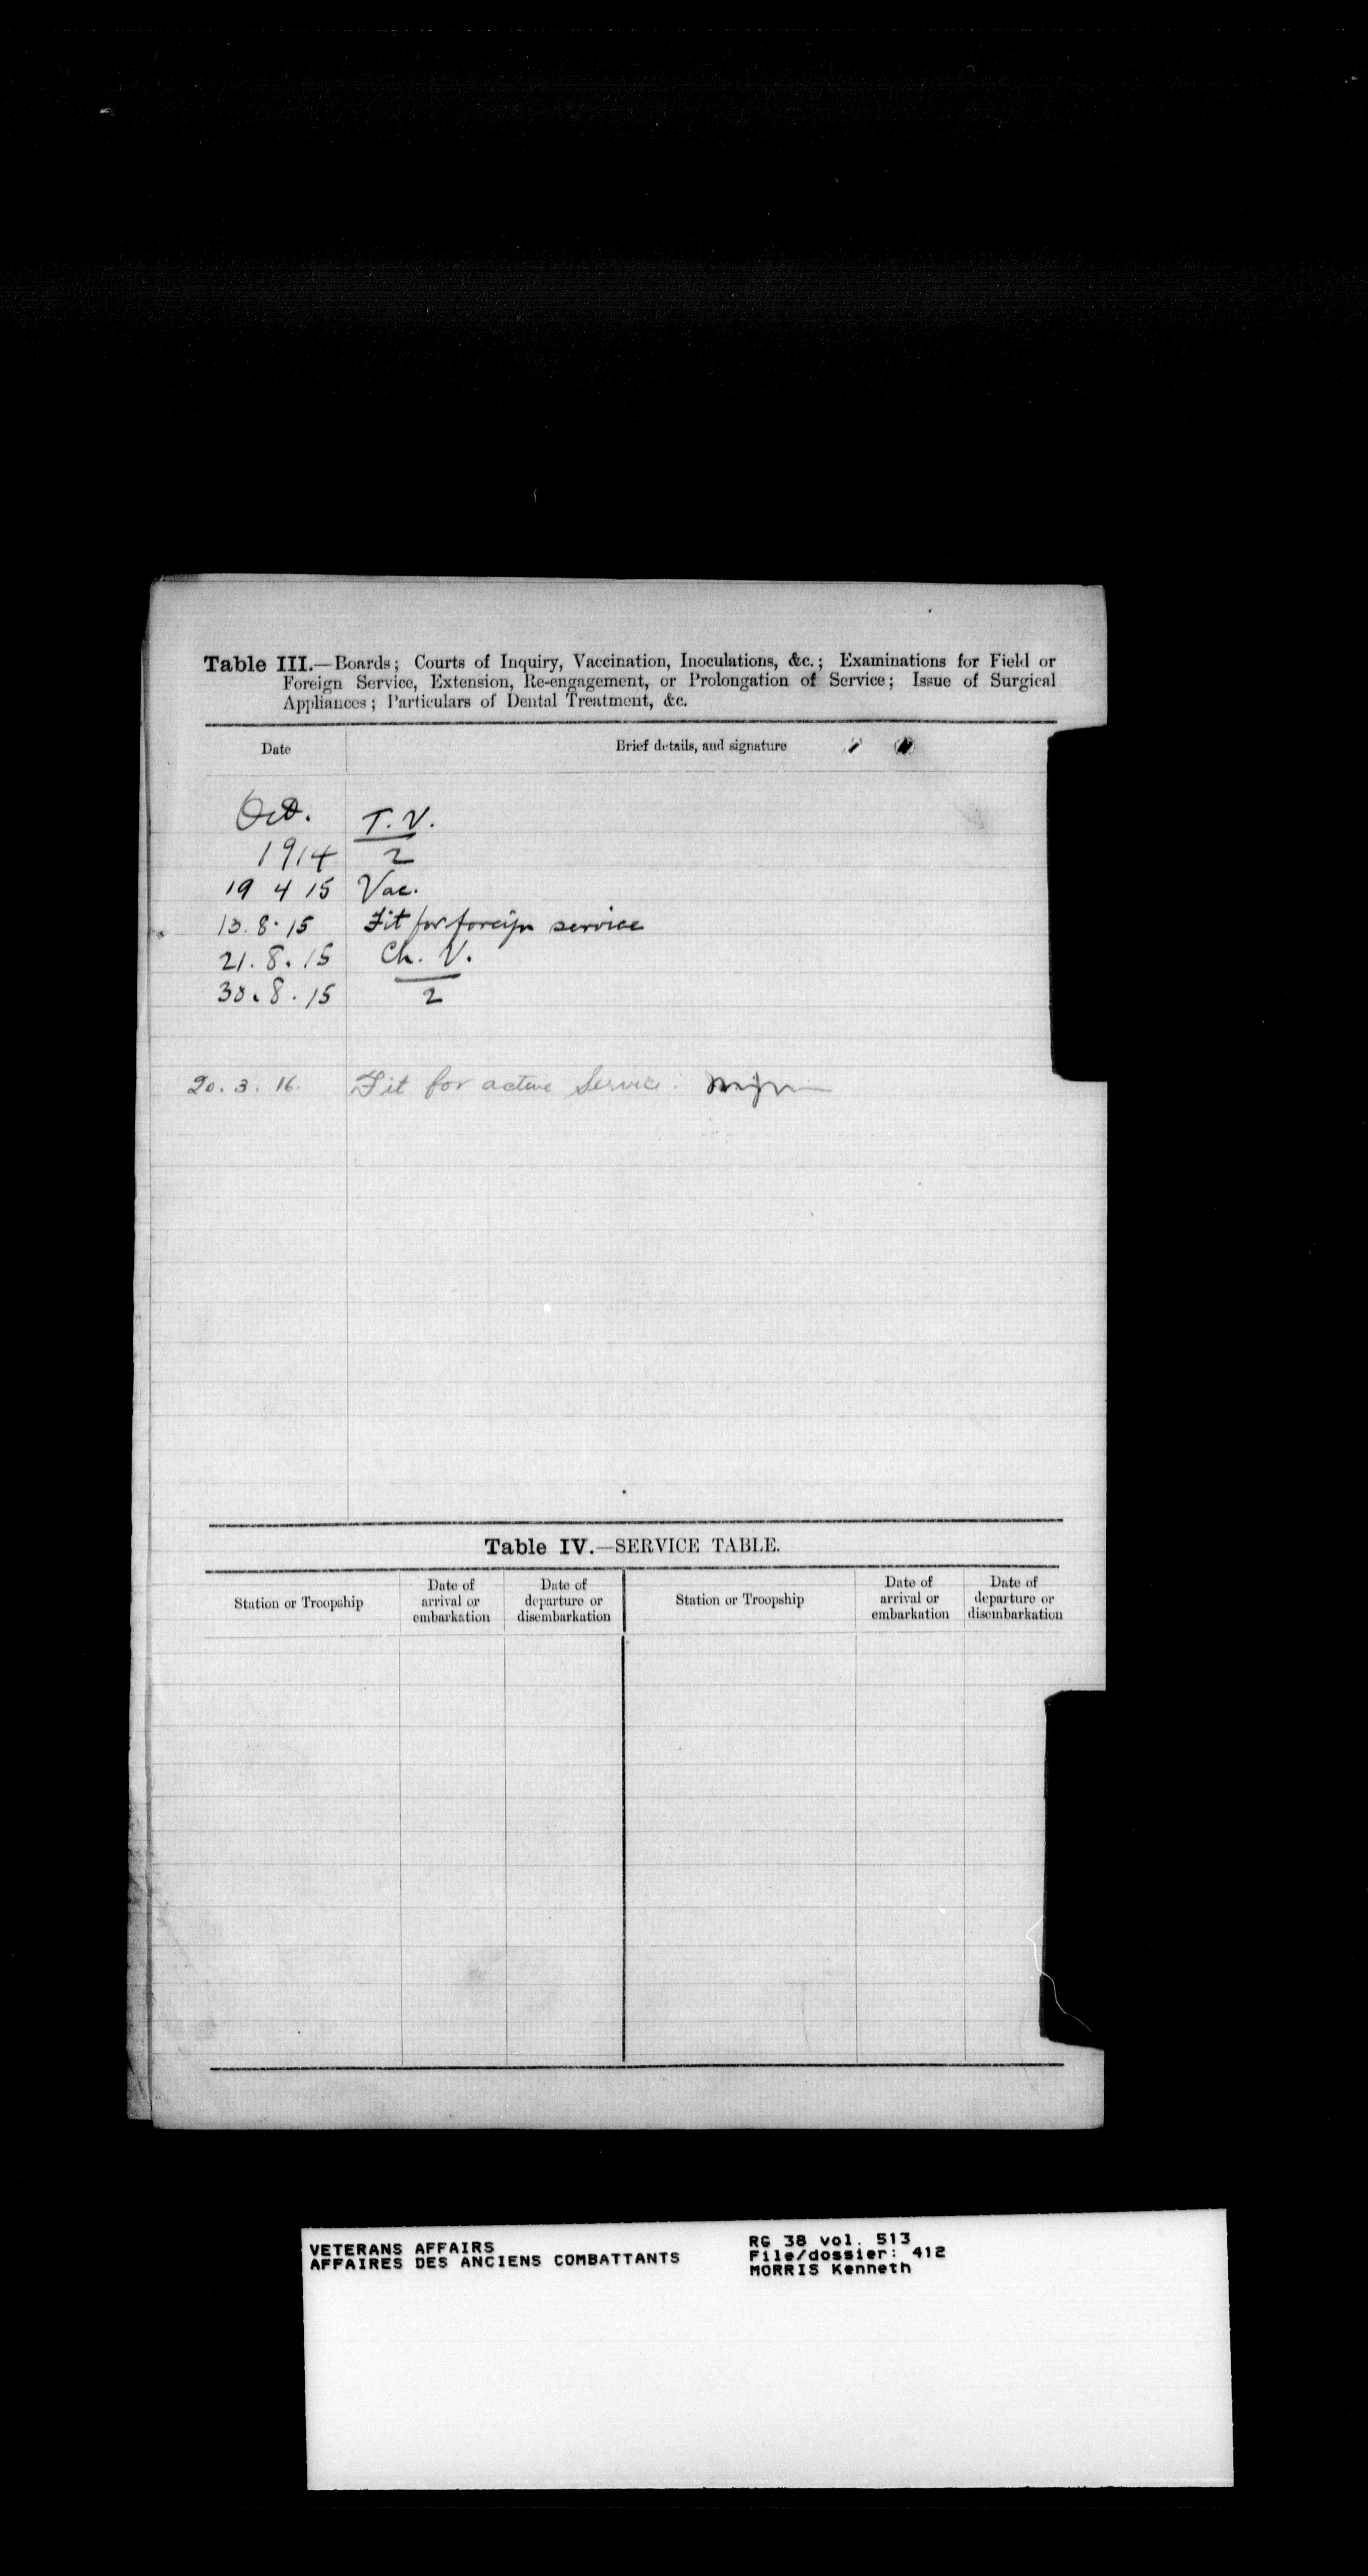 Table III.—Boards; Courts of Inquiry, Vaccination, Inoculations, &c.; Examinations for Field or
Foreign Service, Extension, Re-engagement, or Prolongation of Service; Issue of Surgical
Appliances; Particulars of Dental Treatment, &c.
Date Brief details, and signature
Oct. T. V.
1914 2
19 4 15 Vac.
13. 8. 15 Fit for foreign service
21. 8. 15 Ch. V.
30. 8. 15 2
20. 3. 16. Fit for active Service.
Table IV.—SERVICE TABLE.
Station or Troopship Date of arrival or embarkation Date of departure or disembarkation Station or Troopship Date of arrival or embarkation Date of departure or disembarkation
VETERANS AFFAIRS RG 38 vol. 513
AFFAIRES DES ANCIENS COMBATTANTS File/dossier: 412
MORRIS Kenneth